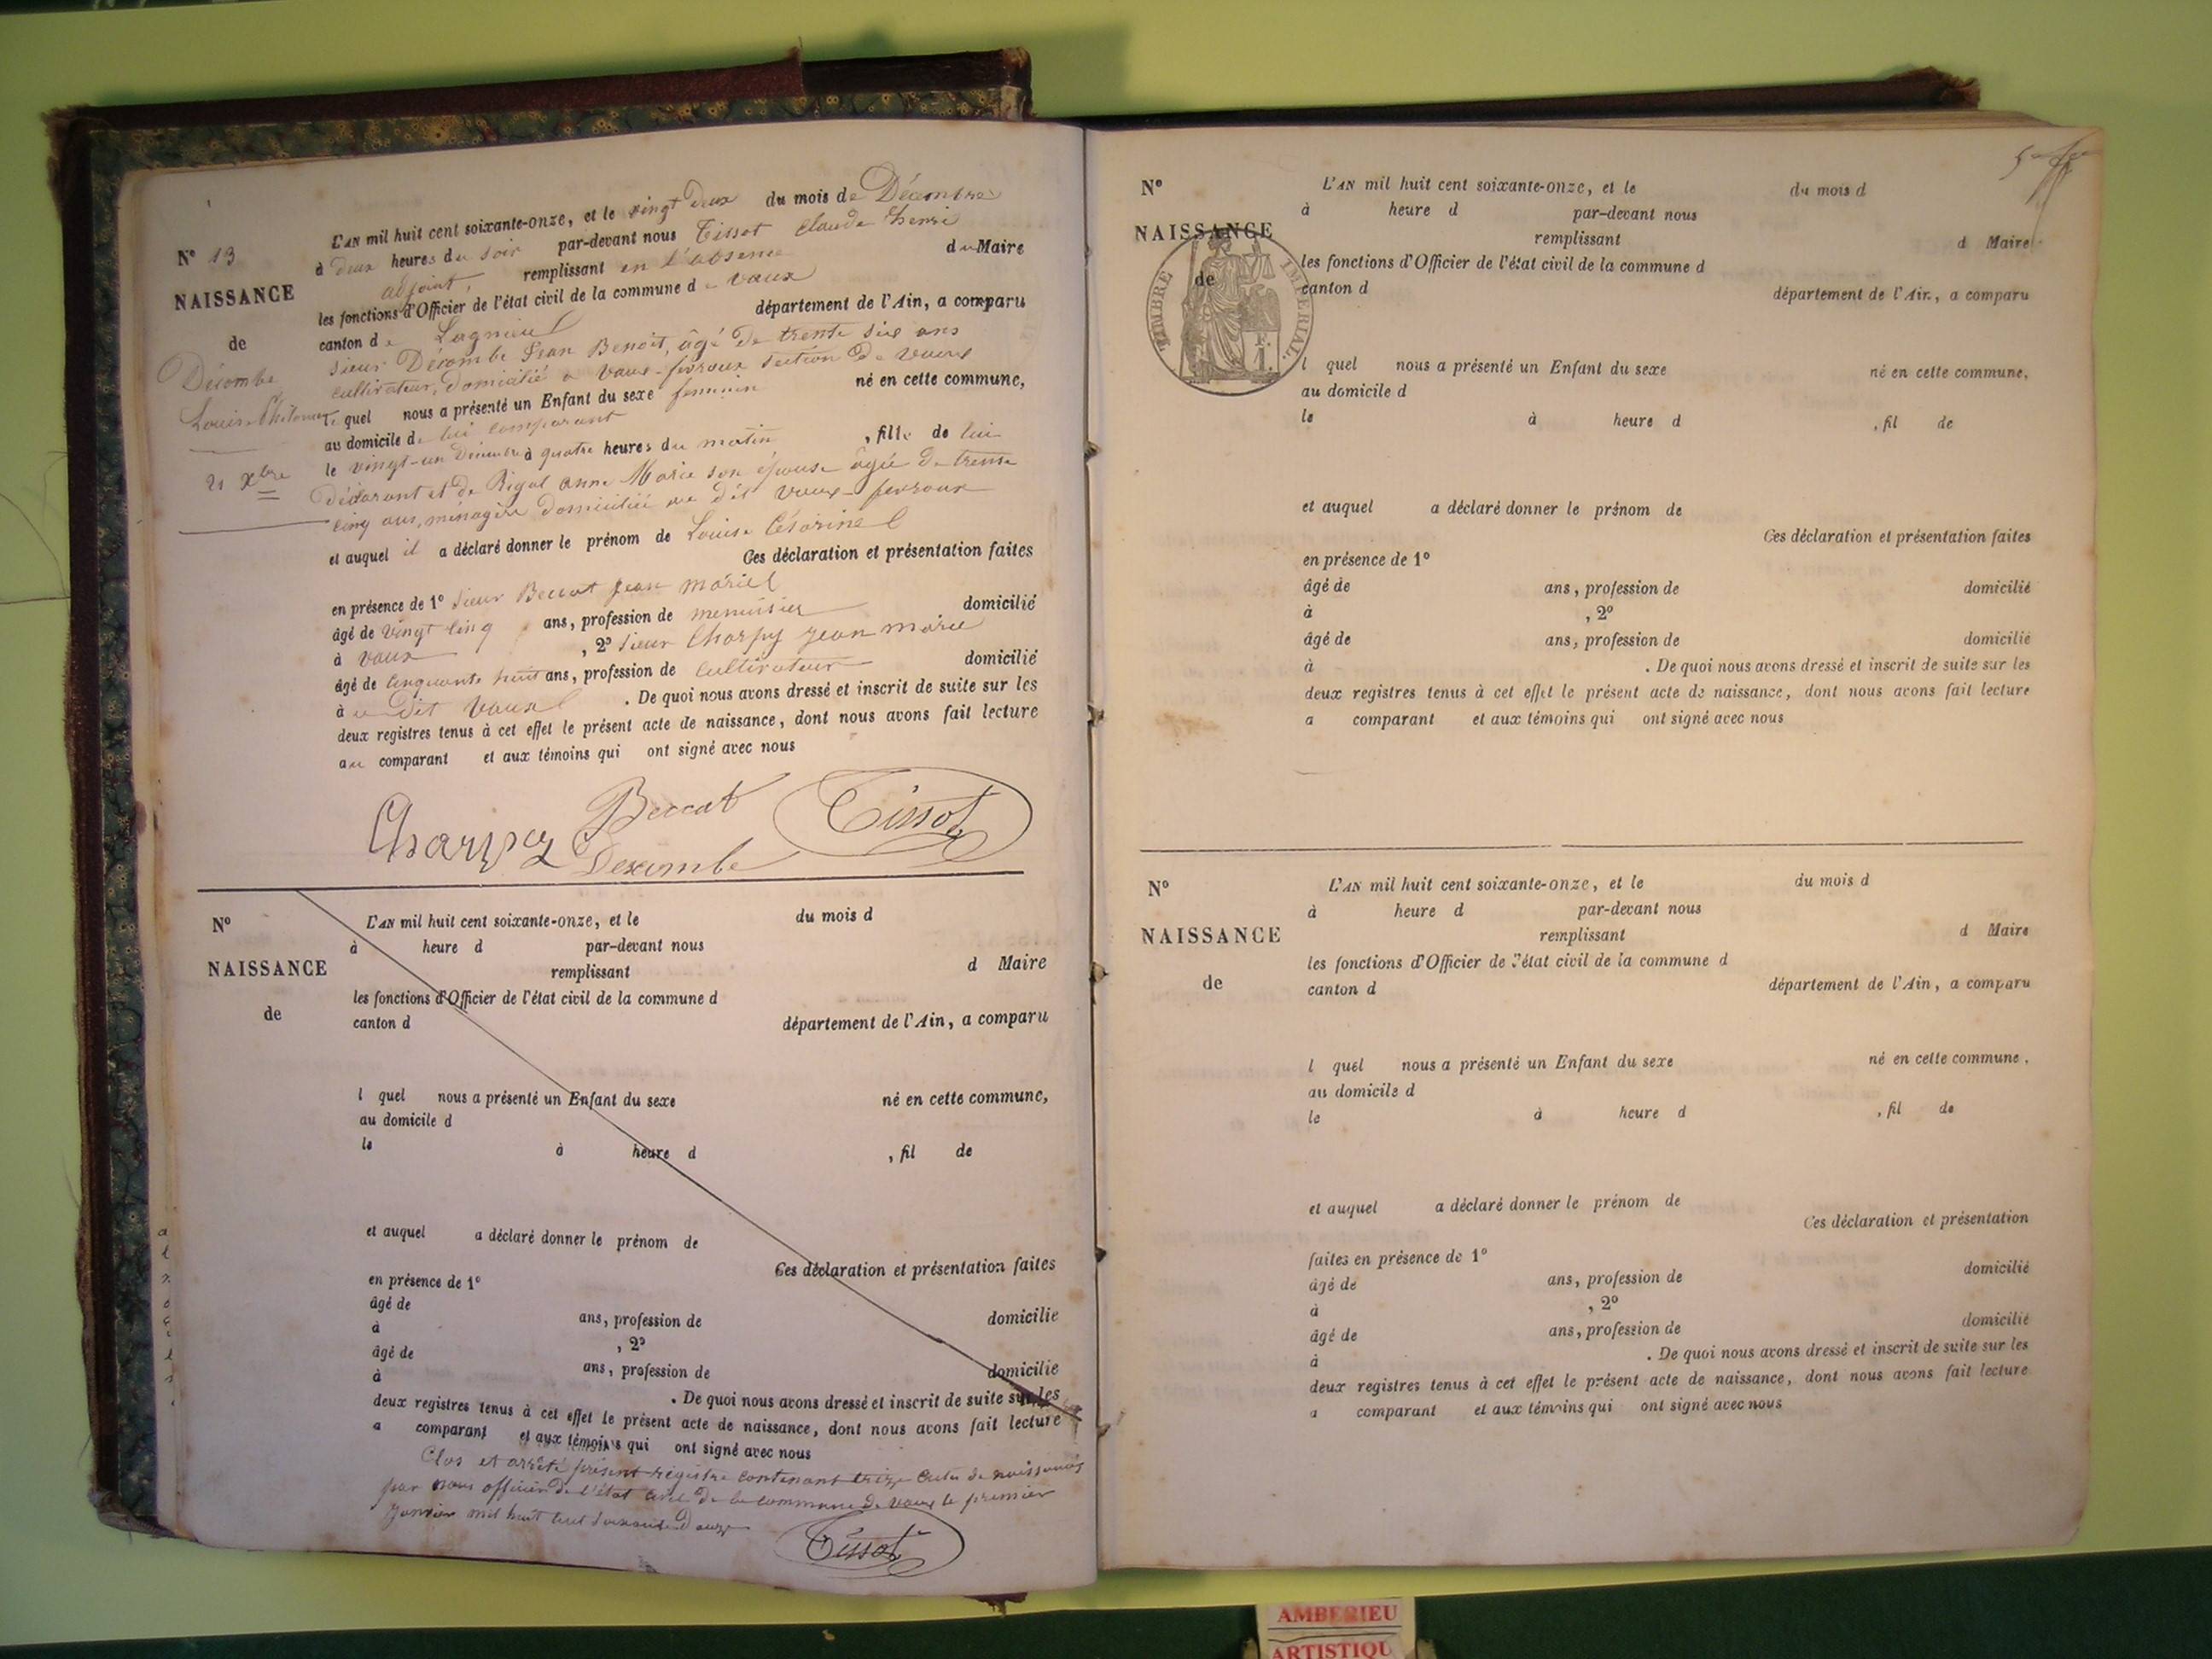 N° 13
NAISSANCE
de
Décombe
21 Xbre
L'AN mil huit cent soixante-onze, et le vingt deux du mois de Décembre
à deux heures du soir par-devant nous Tissot Claude henri
adjoint, remplissant en l'absence du Maire
les fonctions d'Officier de l'état civil de la commune de Vaux
canton de Lagnieu département de l'Ain, a comparu
sieur Décombe Jean Benoit, âgé de trente six ans
cultivateur, domicilié a Vaux-fevroux section de Vaux
le quel nous a présenté un Enfant du sexe feminin né en cette commune,
au domicile de lui comparant
le vingt-un Décembre à quatre heures du matin, fille de lui
déclarant et de Rigal Anne Marie son épouse âgée de trente
cinq ans, ménagère domiciliée au dit Vaux-fevroux
et auquel il a déclaré donner le prénom de Louise Césarine
Ces déclaration et présentation faites
en présence de 1° Sieur Beccat Jean Marie
âgé de vingt cinq ans, profession de menuisier domicilié
à Vaux, 2° Sieur Charpy Jean Marie
âgé de cinquante huit ans, profession de cultivateur domicilié
à au Dit Vaux. De quoi nous avons dressé et inscrit de suite sur les
deux registres tenus à cet effet le présent acte de naissance, dont nous avons fait lecture
au comparant et aux témoins qui ont signé avec nous
Charpy Beccat Tissot
Descombe
N°
NAISSANCE
de
L'AN mil huit cent soixante-onze, et le du mois d
à heure d par-devant nous
remplissant d Maire
les fonctions d'Officier de l'état civil de la commune d
canton d département de l'Ain, a comparu
l quel nous a présenté un Enfant du sexe né en cette commune,
au domicile d
le à heure d , fil de
et auquel a déclaré donner le prénom de
Ces déclaration et présentation faites
en présence de 1°
âgé de ans, profession de domicilie
à , 2°
âgé de ans, profession de domicilie
à . De quoi nous avons dressé et inscrit de suite sur les
deux registres tenus à cet effet le présent acte de naissance, dont nous avons fait lecture
a comparant et aux témoins qui ont signé avec nous
Clos et arrêté présent registre contenant treize actes de naissances
par nous officier de l'état civil de la commune de Vaux le premier
Janvier mil huit cent soixante Douze
Tissot
N°
NAISSANCE
de
TIMBRE IMPERIAL.
L'AN mil huit cent soixante-onze, et le du mois d
à heure d par-devant nous
remplissant d Maire
les fonctions d'Officier de l'état civil de la commune d
canton d département de l'Ain, a comparu
l quel nous a présenté un Enfant du sexe né en cette commune,
au domicile d
le à heure d , fil de
et auquel a déclaré donner le prénom de
Ces déclaration et présentation faites
en présence de 1°
âgé de ans, profession de domicilié
à , 2°
âgé de ans, profession de domicilié
à . De quoi nous avons dressé et inscrit de suite sur les
deux registres tenus à cet effet le présent acte de naissance, dont nous avons fait lecture
a comparant et aux témoins qui ont signé avec nous
N°
NAISSANCE
de
L'AN mil huit cent soixante-onze, et le du mois d
à heure d par-devant nous
remplissant d Maire
les fonctions d'Officier de l'état civil de la commune d
canton d département de l'Ain, a comparu
l quel nous a présenté un Enfant du sexe né en cette commune,
au domicile d
le à heure d , fil de
et auquel a déclaré donner le prénom de
Ces déclaration et présentation
faites en présence de 1°
âgé de ans, profession de domicilié
à , 2°
âgé de ans, profession de domicilié
à . De quoi nous avons dressé et inscrit de suite sur les
deux registres tenus à cet effet le présent acte de naissance, dont nous avons fait lecture
a comparant et aux témoins qui ont signé avec nous
AMBERIEU
ARTISTIQU